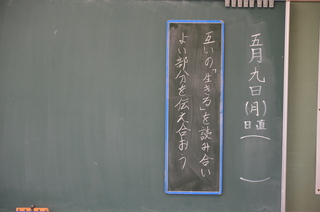 五月九日(月)
日直( )
互いの「生きる」を読み合い
よい部分を伝え合おう